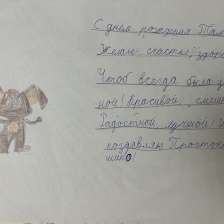 С днём рождения Там
Желаю счастья, здоро
Чтоб всегда была у
ной! Красивой, смеш
Радостной, лучшей!
поздравляю Просток
шино